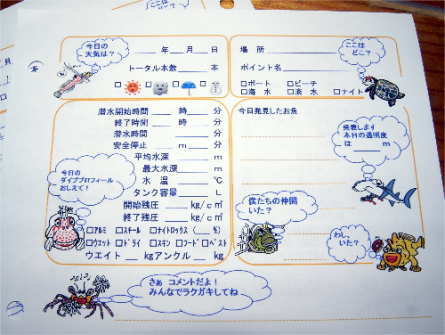 今日の
天気は？
＿＿年＿月＿日
トータル本数＿＿＿本
場 所
ポイント名
ここは
どこ？
□ボート □ビーチ
□海 水 □淡 水 □ナイト
潜水開始時間＿＿時＿＿分
終了時間＿＿時＿＿分
潜水時間＿＿＿分
安全停止＿＿m＿＿分
平均水深＿＿＿m
最大水深＿＿＿m
水 温＿＿＿℃
タンク容量＿＿＿L
開始残圧＿＿＿kg/c㎡
終了残圧＿＿＿kg/c㎡
□アルミ □スチール □ナイトロックス(＿＿%)
□ウエット □ドライ □スキン □フード □ベスト
ウエイト＿＿kgアンクル＿＿kg
今日の
ダイブプロフィール
おしえて！
今日発見したお魚
発表します
本日の透明度
は＿＿＿m
僕たちの仲間
いた？
わし、
いた？
さぁ コメントだよ！
みんなでラクガキしてね